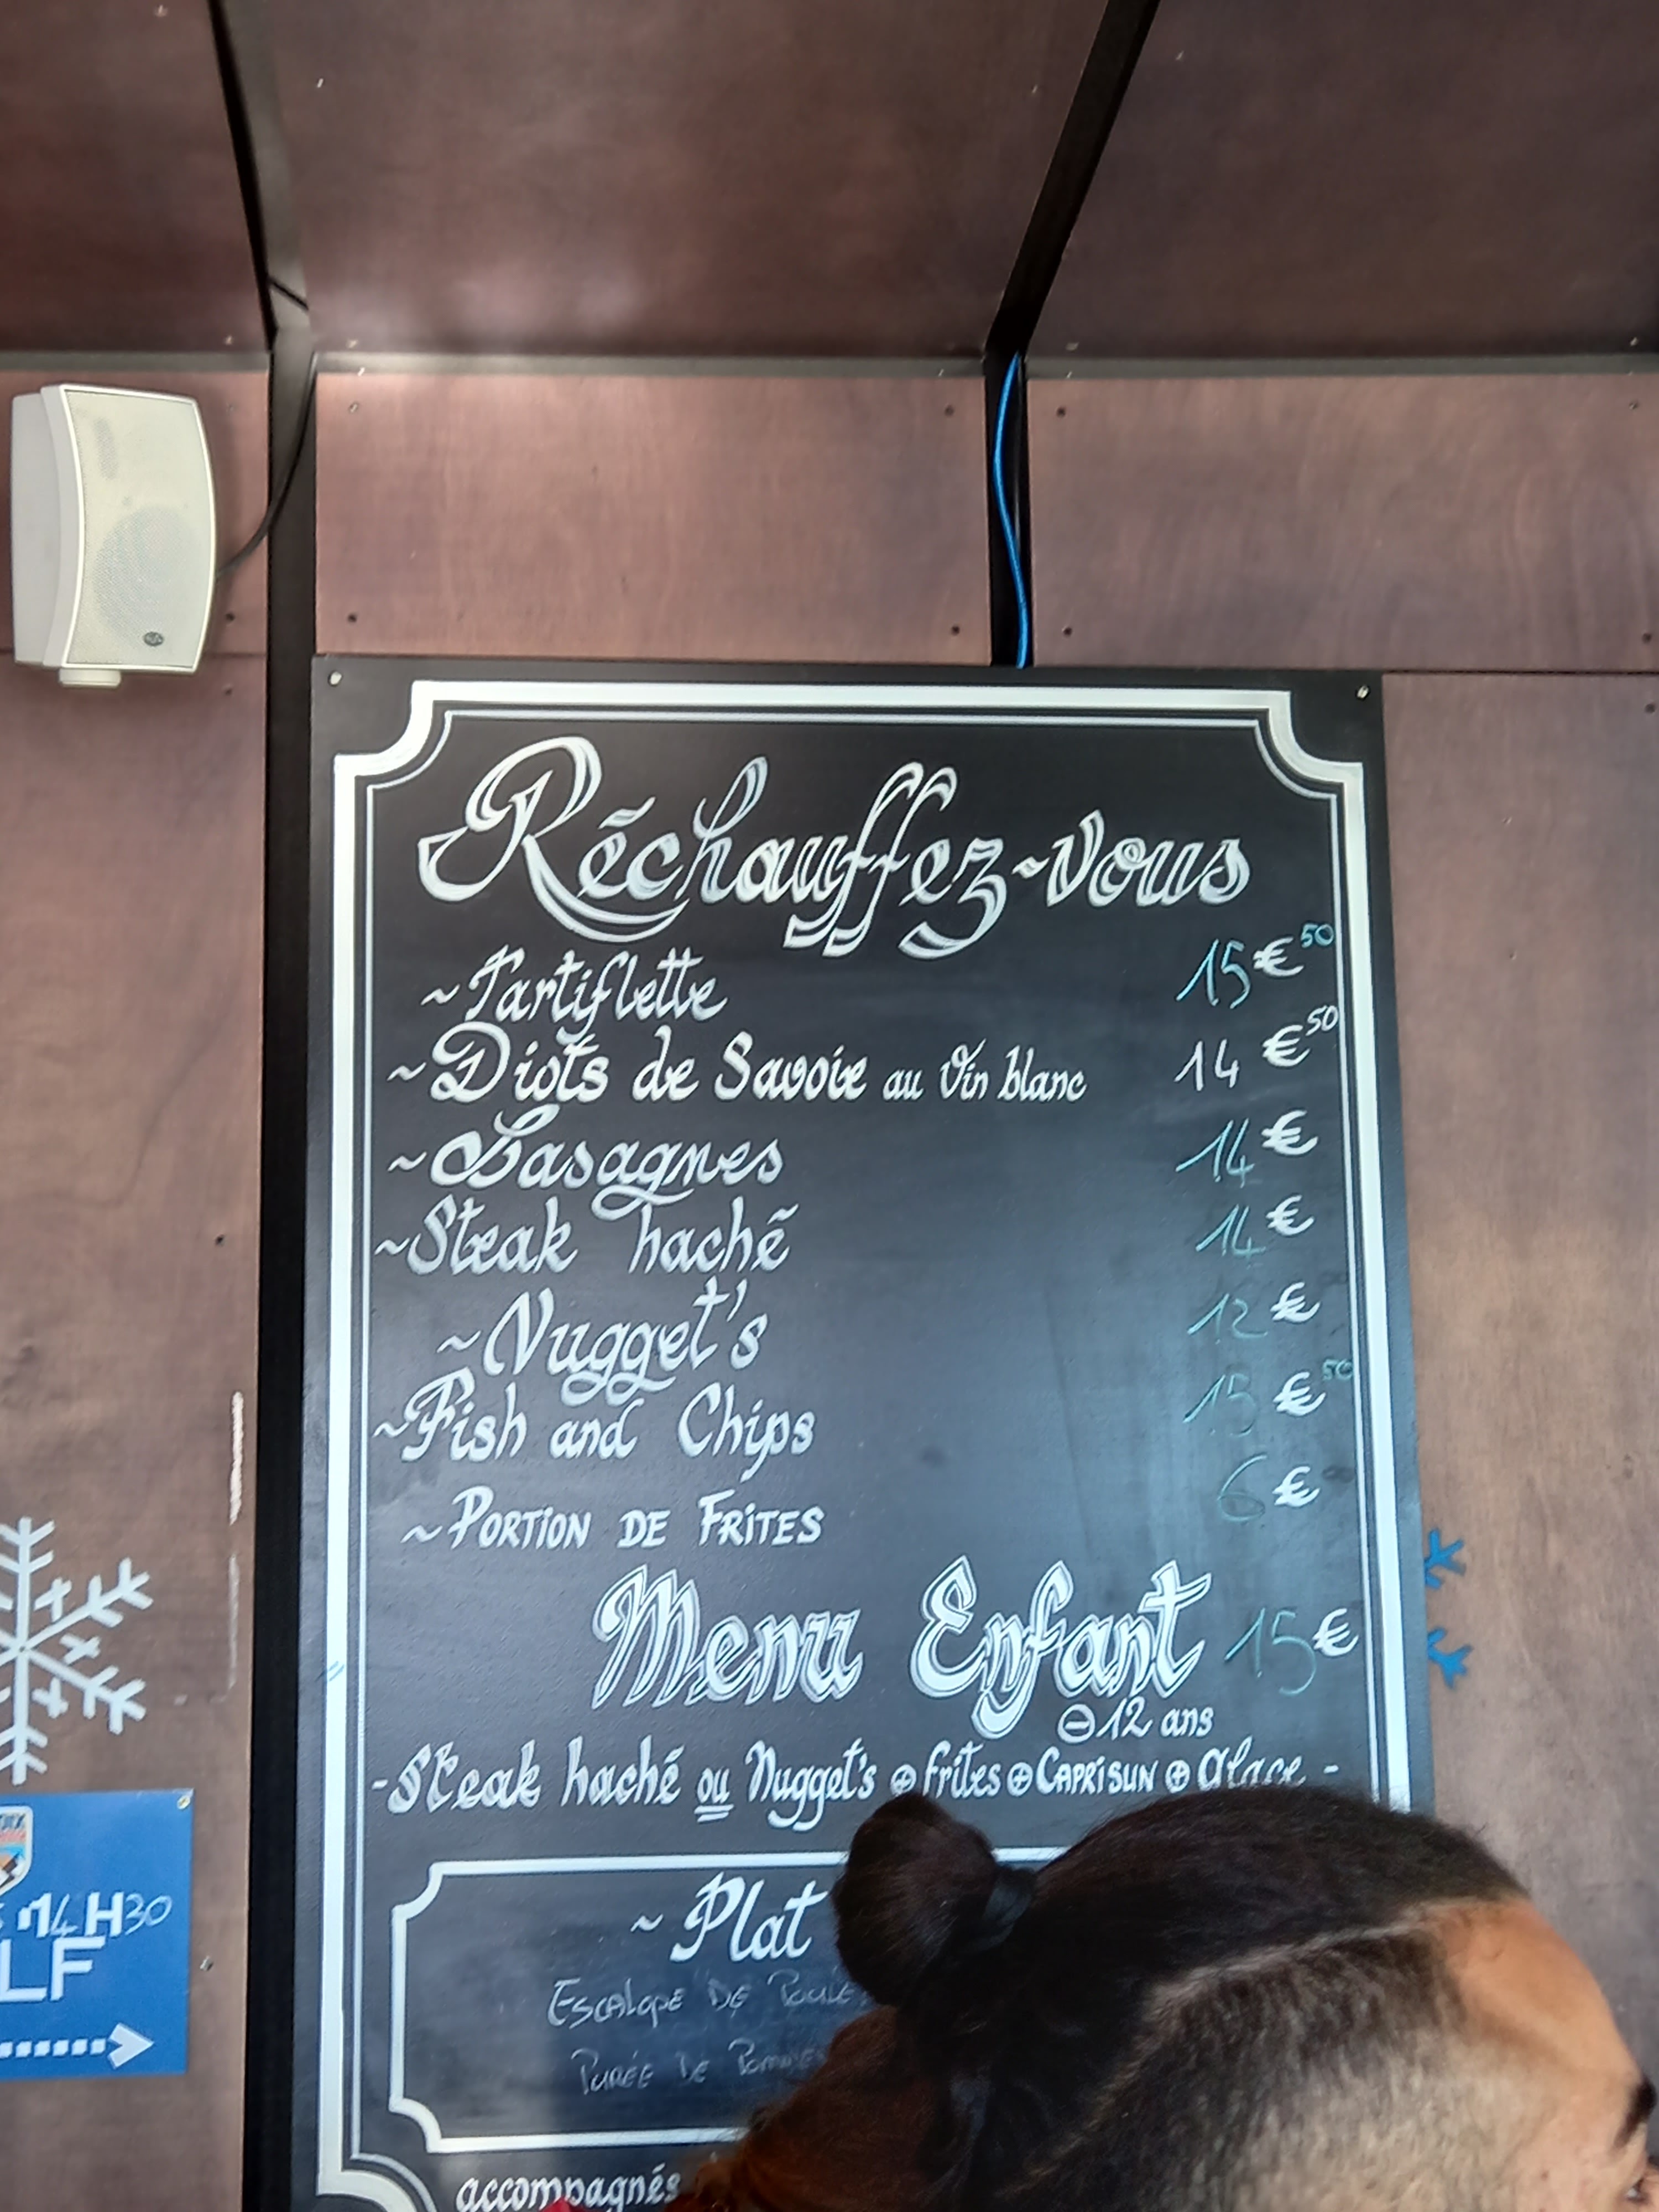 Réchauffez-vous
~Tartiflette 15€50
~Diots de Savoie au Vin blanc 14€50
~Lasagnes 14€
~Steak haché 14€
~Nugget's 12€
~Fish and Chips 15€50
~PORTION DE FRITES 6€
Menu Enfant 15€
⊖12 ans
-Steak haché ou Nugget's ⊕ frites ⊕ CAPRISUN ⊕ Glace -
~ Plat
ESCALOPE DE
PURÉE DE
accompagnés
14H30
LF